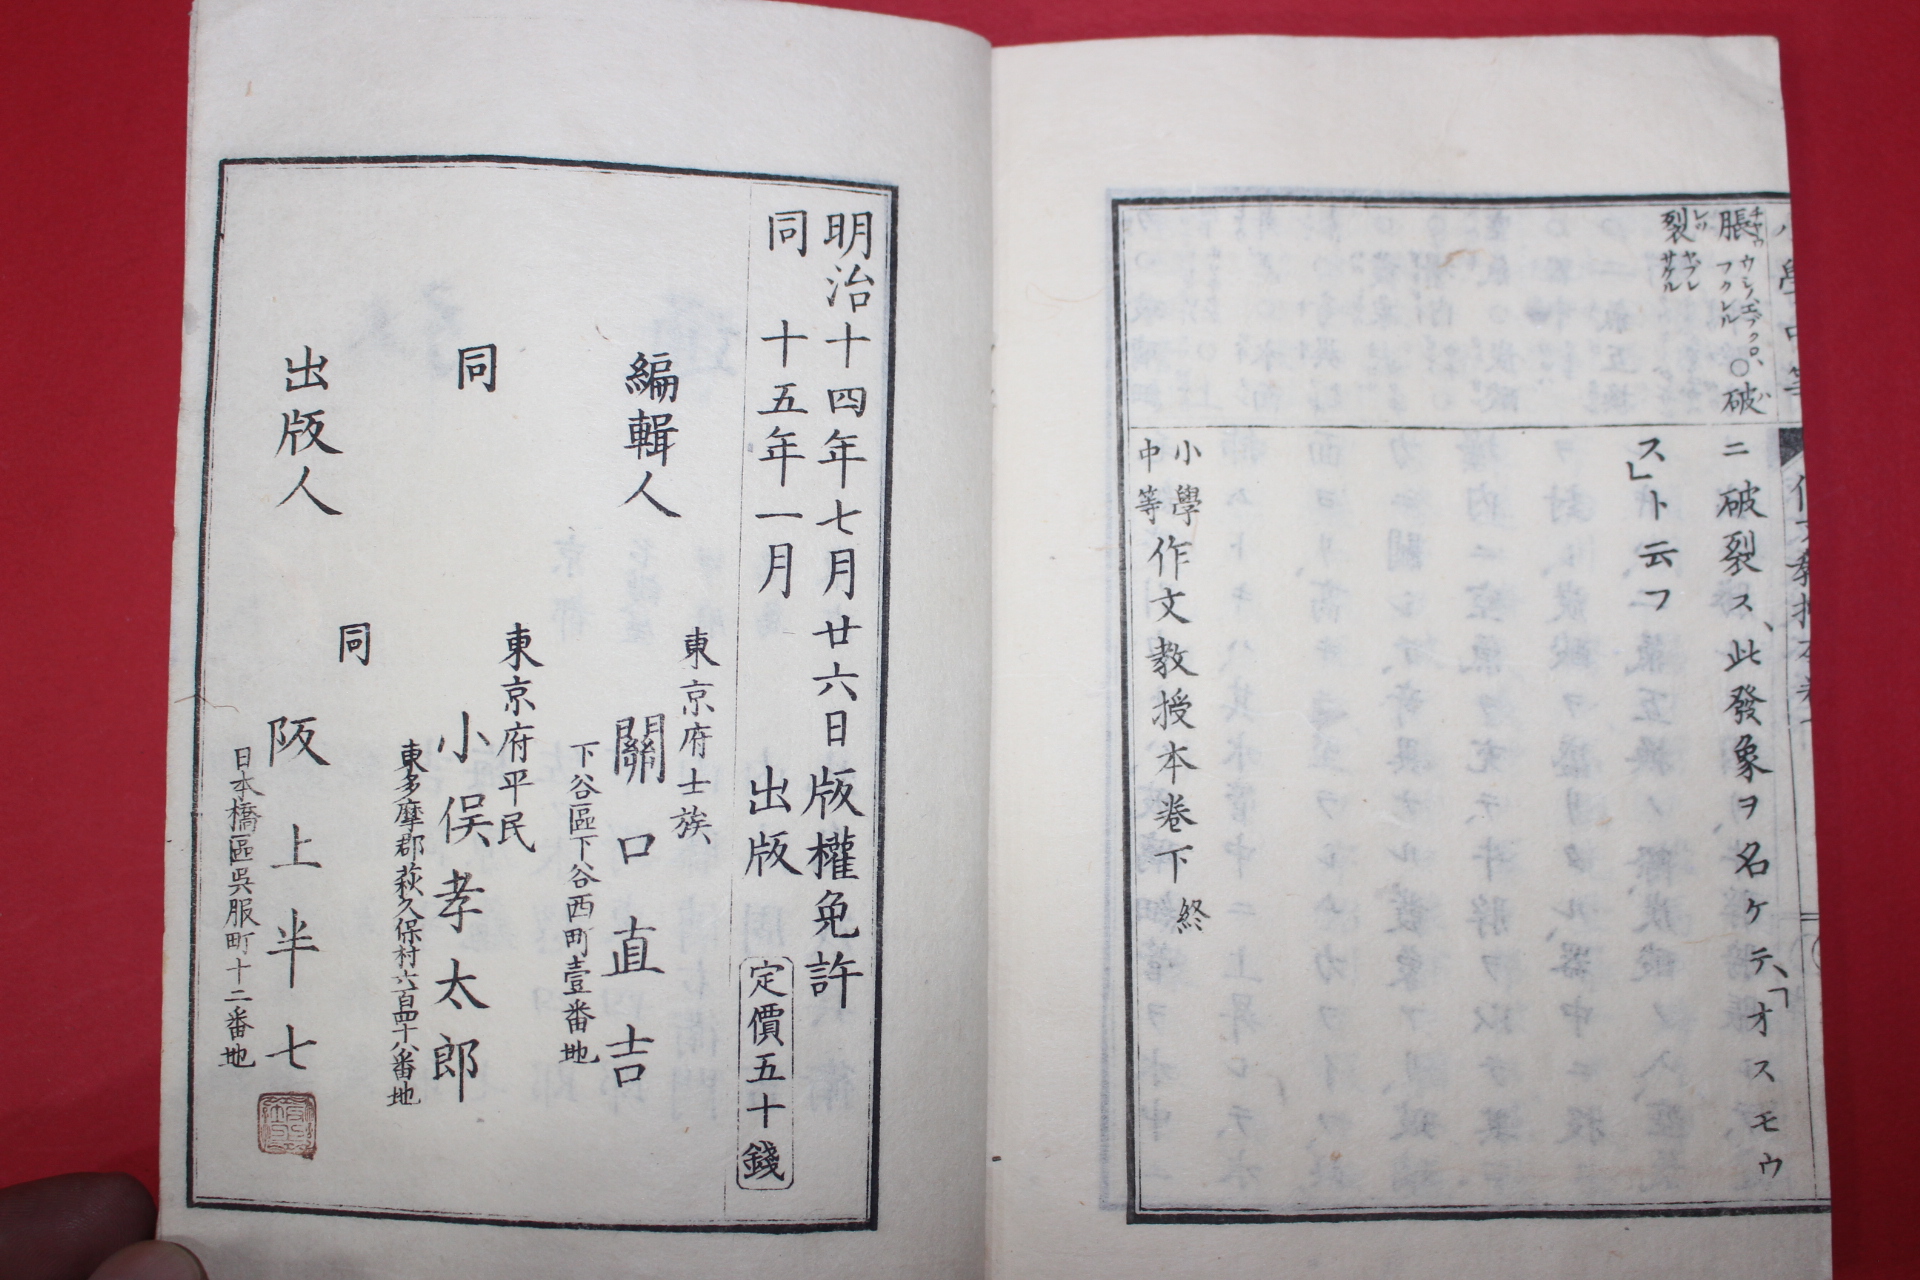 脹 チヤウ ウシノエブクロ、フクレル ○破
裂 レツ ヤブレサケル
ニ破裂ス、此發象ヲ名ケテ、「オスモウ
ス」ト云フ
小學中等作文教授本卷下終
明治十四年七月廿六日版權免許
同 十五年一月 出版 定價五十錢
東京府士族
編輯人 關口直吉
下谷區下谷西町壹番地
東京府平民
同 小俣孝太郎
東多摩郡萩久保村六百四十八番地
同
出版人 阪上半七
日本橋區吳服町十二番地